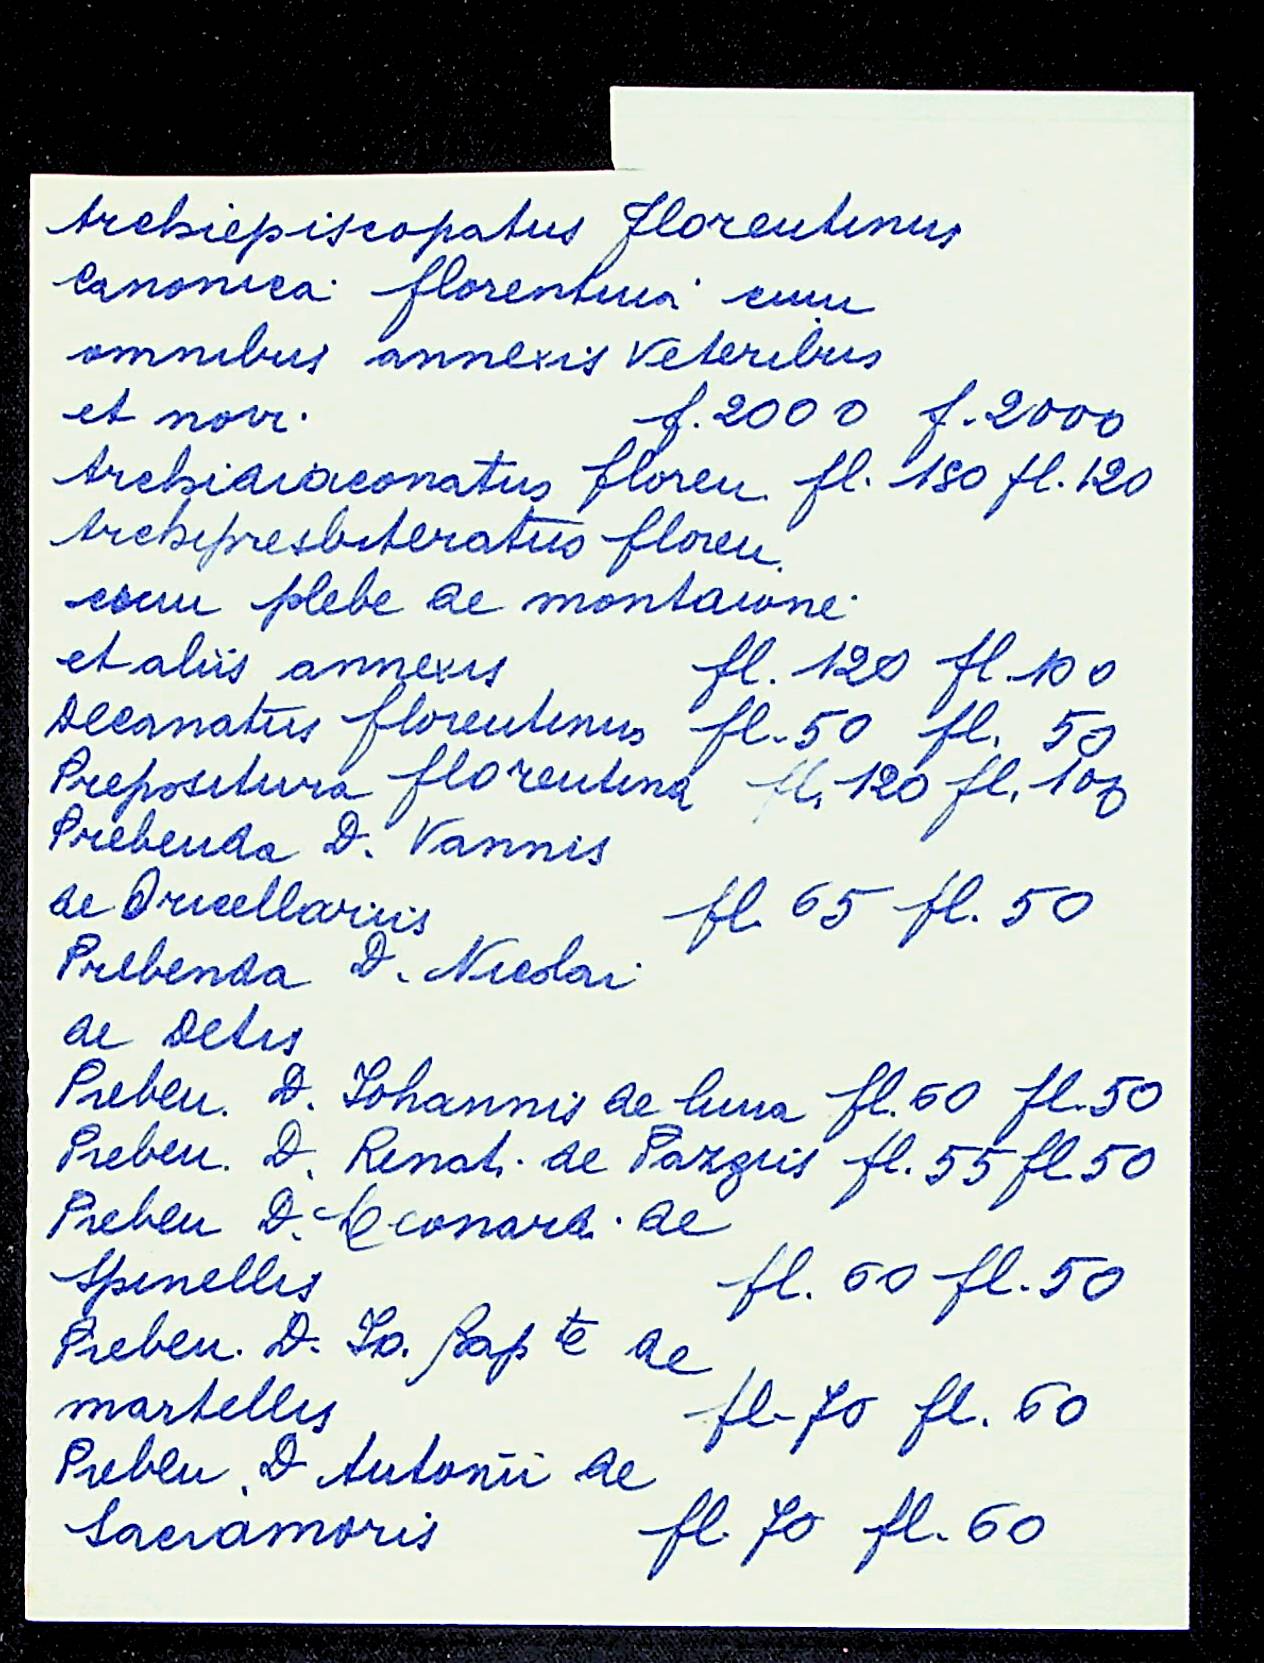 Archiepiscopatus Florentinus
Canonica florentina cum
omnibus annexis veteribus
et novi. f. 2000 f. 2000
Archidiaconatus floren. fl. 180 fl. 120
Archipresbiteratus floren.
cum plebe de montaione
et aliis annexis fl. 120 fl. 100
Decanatus florentinus fl. 50 fl. 50
Prepositura florentina fl. 120 fl. 100
Prebenda D. Vannis
de Oricellariis fl. 65 fl. 50
Prebenda D. Nicolai
de Detis
Preben. D. Johannis de luna fl. 60 fl. 50
Preben. D. Renati de Pazguis fl. 55 fl 50
Preben D. Leonardi de
Spinellis fl. 60 fl. 50
Preben. D. Jo. Bapte de
martellis fl. 70 fl. 60
Preben. D Antonii de
Sacramoris fl. 70 fl. 60